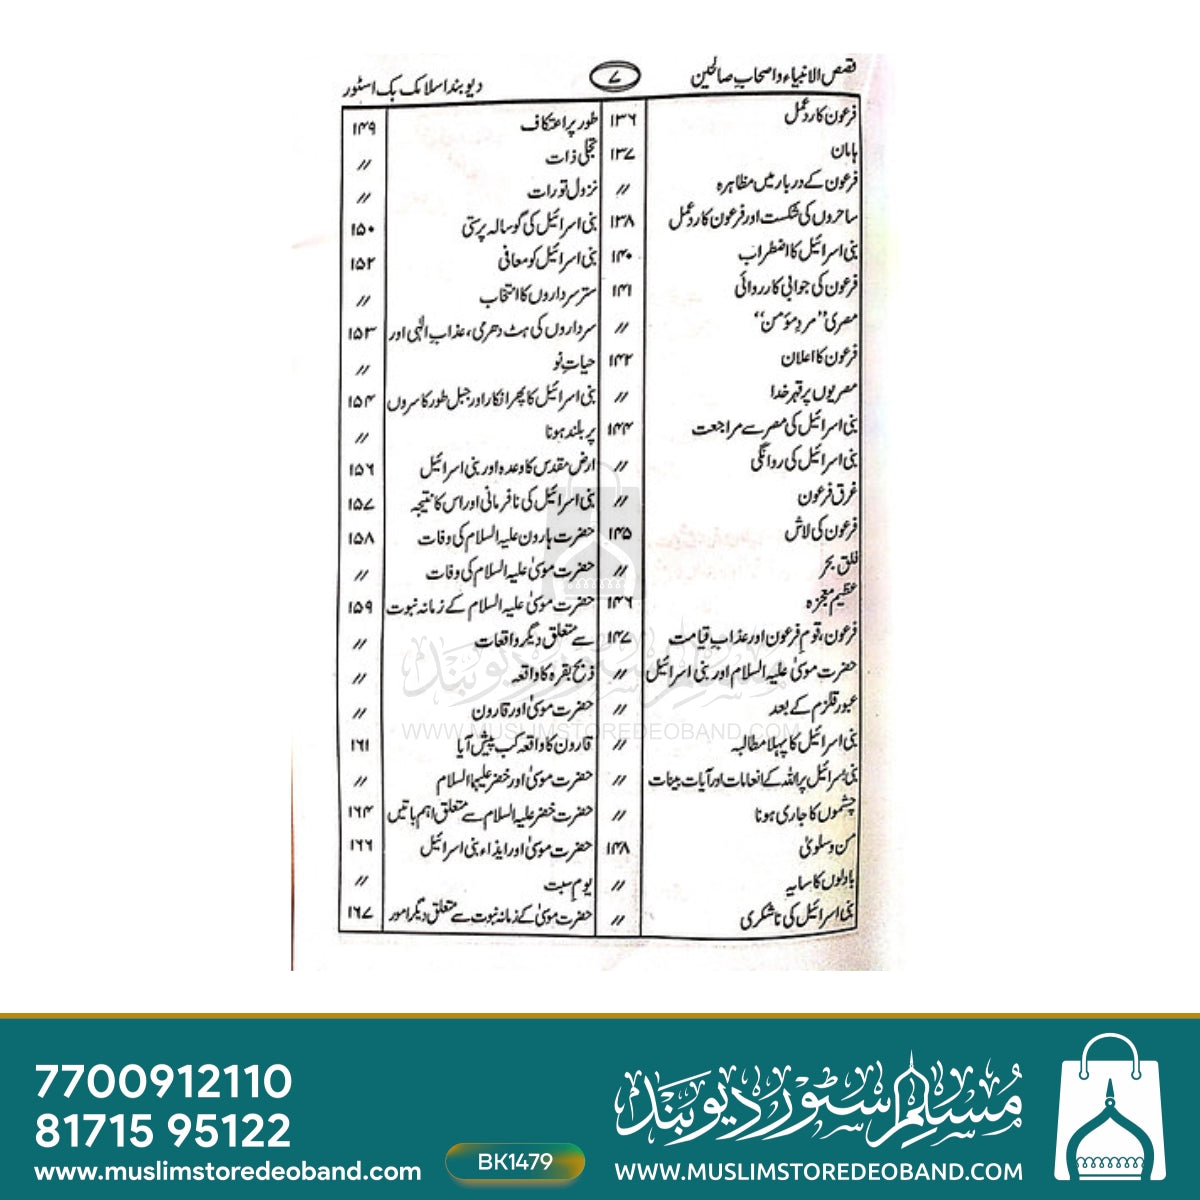 قصص الانبیاء و اصحاب صالحین ۷ دیوبند اسلامک بک اسٹور
فرعون کا ردعمل ۱۳۶
ہامان ۱۳۷
فرعون کے دربار میں مظاہرہ //
ساحروں کی شکست اور فرعون کا ردعمل ۱۳۸
بنی اسرائیل کا اضطراب ۱۴۰
فرعون کی جوابی کارروائی ۱۴۱
مصری ”مردِ مؤمن“ //
فرعون کا اعلان ۱۴۲
مصریوں پر قہر خدا //
بنی اسرائیل کی مصر سے مراجعت ۱۴۴
بنی اسرائیل کی روانگی //
غرق فرعون //
فرعون کی لاش ۱۴۵
فلق بحر //
عظیم معجزہ ۱۴۶
فرعون، قوم فرعون اور عذاب قیامت ۱۴۷
حضرت موسیٰ علیہ السلام اور بنی اسرائیل //
عبور قلزم کے بعد //
بنی اسرائیل کا پہلا مطالبہ //
بنی اسرائیل پر اللہ کے انعامات اور آیات بینات //
چشموں کا جاری ہونا //
من و سلویٰ ۱۴۸
بادلوں کا سایہ //
بنی اسرائیل کی ناشکری //
طور پر اعتکاف ۱۴۹
تجلی ذات //
نزول تورات //
بنی اسرائیل کی گوسالہ پرستی ۱۵۰
بنی اسرائیل کو معافی ۱۵۲
ستر سرداروں کا انتخاب //
سرداروں کی ہٹ دھری، عذاب الٰہی اور ۱۵۳
حیات نو //
بنی اسرائیل کا پھر انکار اور جبل طور کا سروں ۱۵۴
پر بلند ہونا //
ارض مقدس کا وعدہ اور بنی اسرائیل ۱۵۶
بنی اسرائیل کی نافرمانی اور اس کا نتیجہ ۱۵۷
حضرت ہارون علیہ السلام کی وفات ۱۵۸
حضرت موسیٰ علیہ السلام کی وفات //
حضرت موسیٰ علیہ السلام کے زمانہ نبوت ۱۵۹
سے متعلق دیگر واقعات //
ذبح بقرہ کا واقعہ //
حضرت موسیٰ اور قارون //
قارون کا واقعہ کب پیش آیا ۱۶۱
حضرت موسیٰ اور خضر علیہما السلام //
حضرت خضر علیہ السلام سے متعلق اہم باتیں ۱۶۴
حضرت موسیٰ اور ایذاء بنی اسرائیل ۱۶۶
یوم سبت //
حضرت موسیٰ کے زمانہ نبوت سے متعلق دیگر امور ۱۶۷
مسلم سٹور دیوبند
WWW.MUSLIMSTOREDEOBAND.COM
7700912110
81715 95122
www.muslimstoredeoband.com
BK1479
مسلم سٹور دیوبند
WWW.MUSLIMSTOREDEOBAND.COM